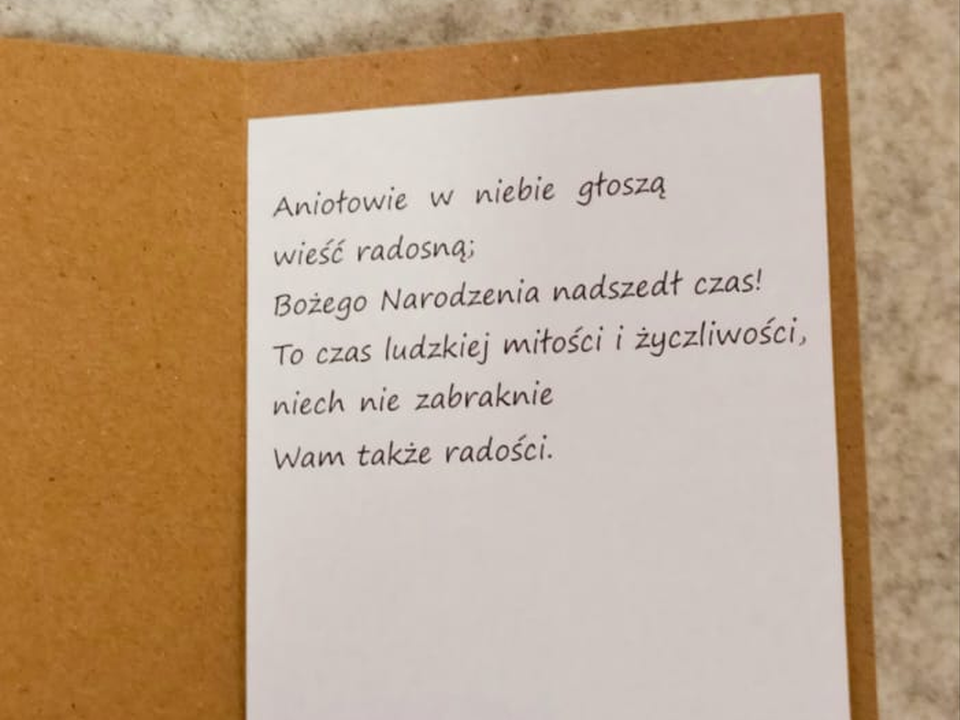 Aniołowie w niebie głoszą
wieść radosną;
Bożego Narodzenia nadszedł czas!
To czas ludzkiej miłości i życzliwości,
niech nie zabraknie
Wam także radości.